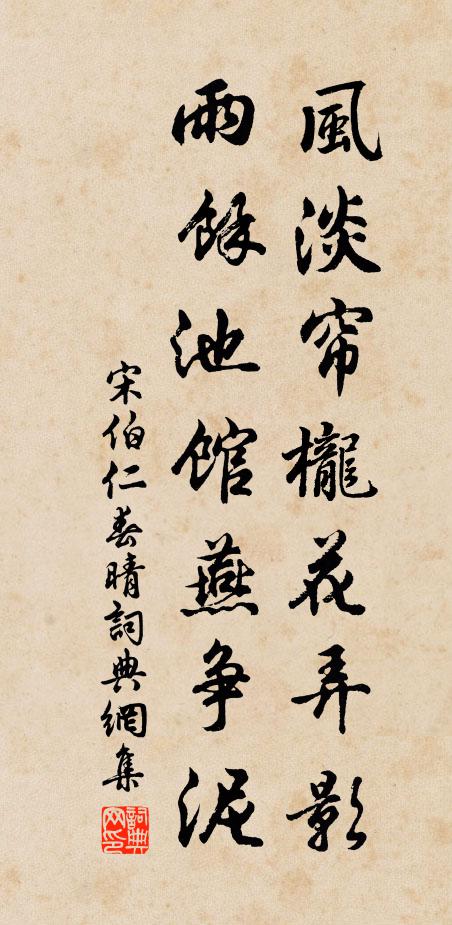 風淡帘櫳花弄影
雨餘池馆燕争泥
宋伯仁春晴詞典網集
詞典网印